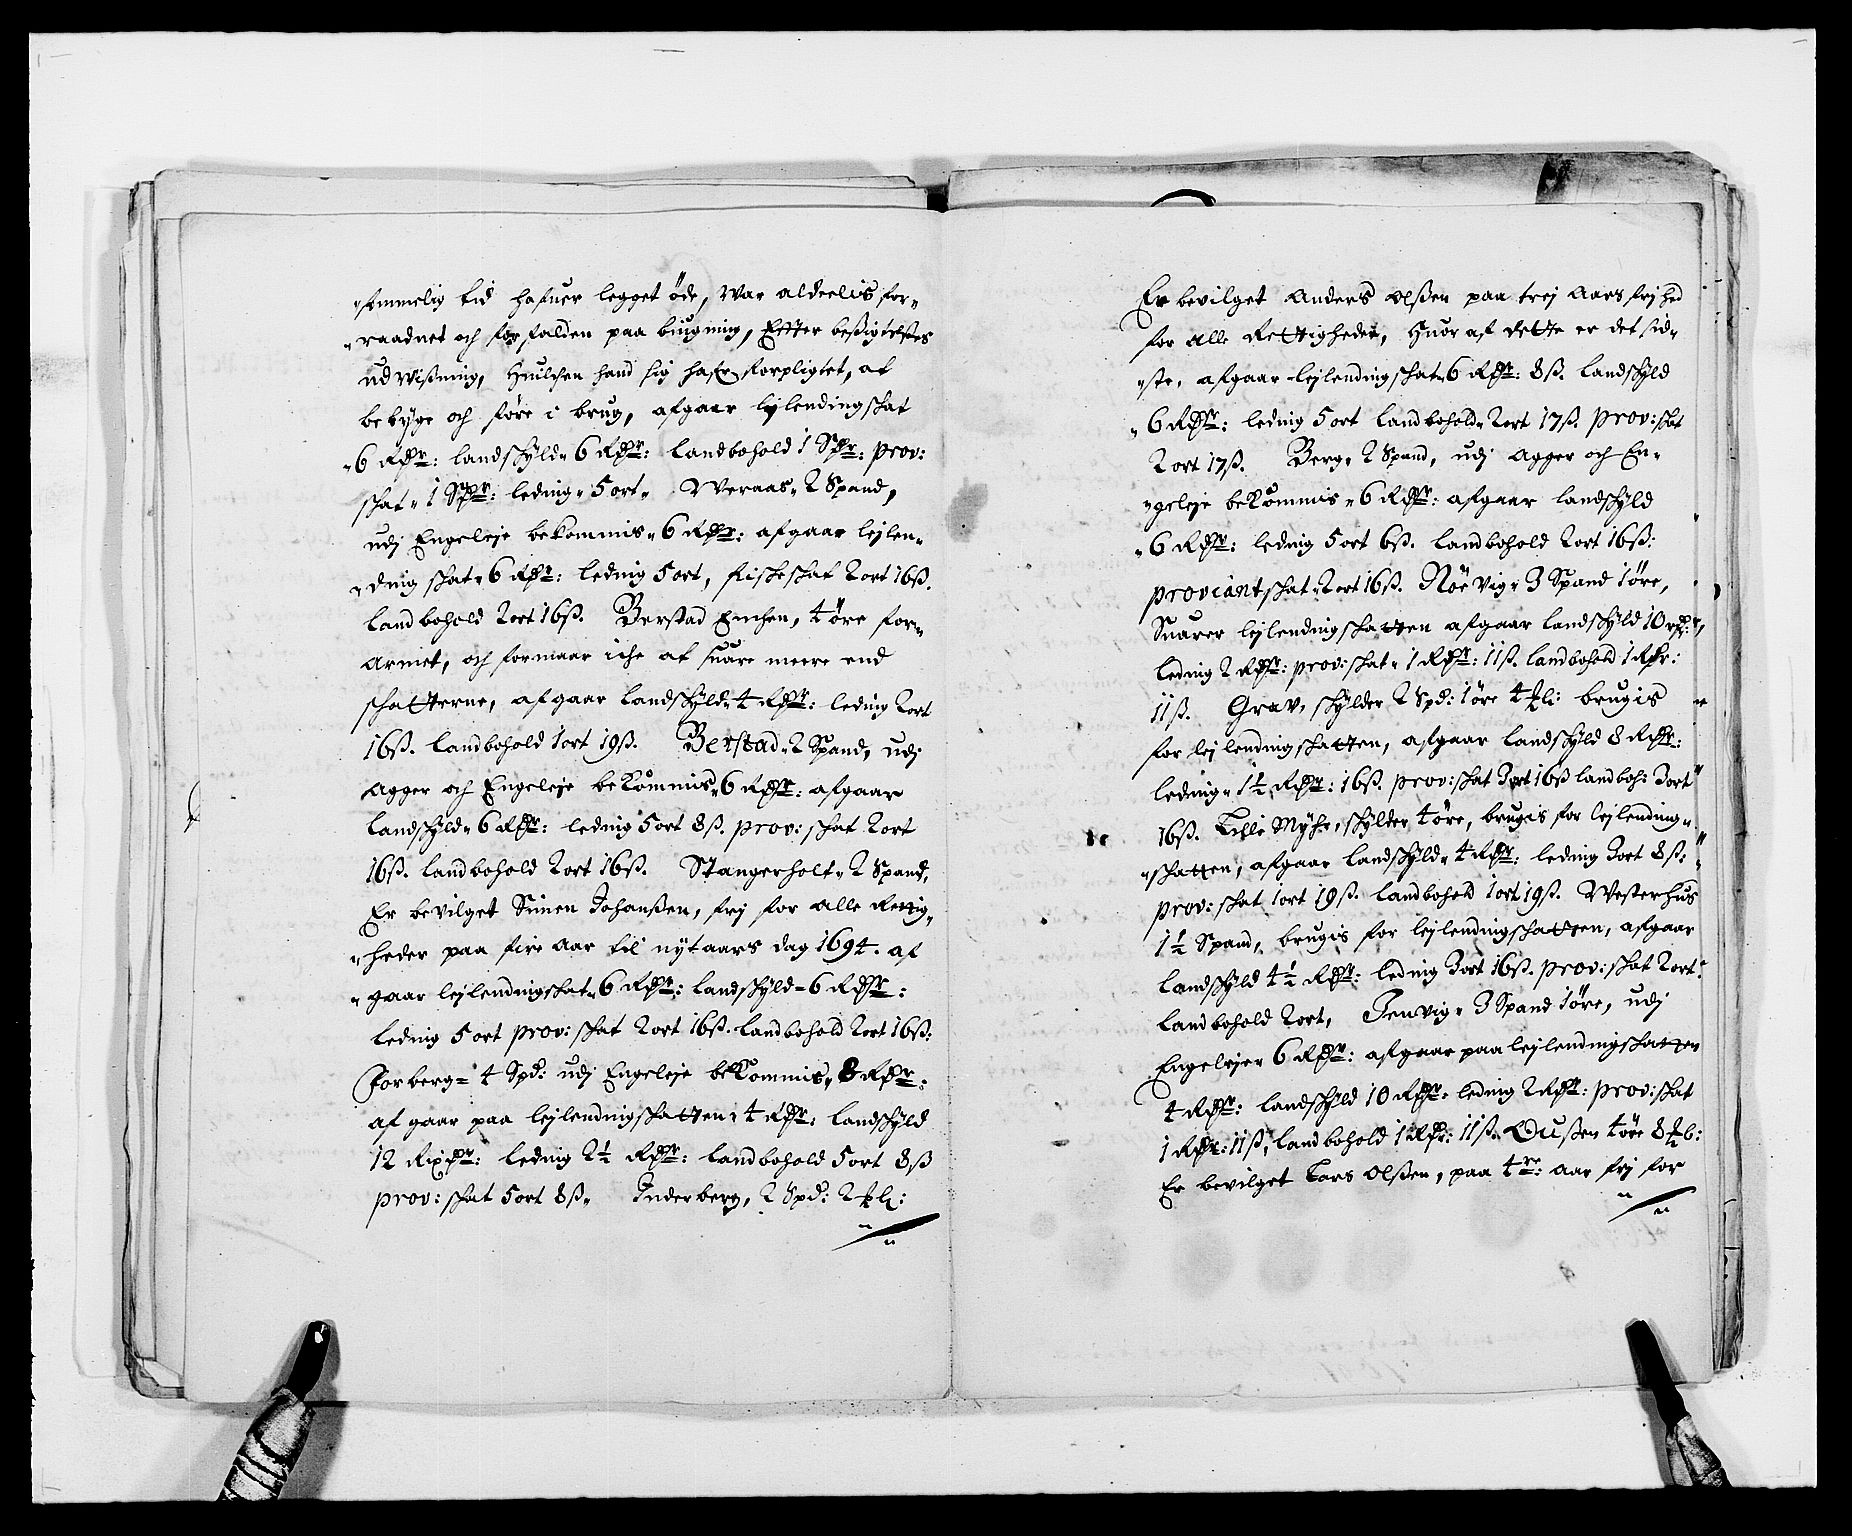 "femmelig tid hafuer legget öde, War aldeelis for,,
"raadnet och forfalden paa biugning, Effter besigtelses
udvißning, Huilchen hand sig hafr forpligtet, at
bebyge och före i brug, afgaar lejlendingschat
"6 Rdr: landschyld" 6 Rdr: landbohold 1 Spr: prov:
schat" 1 Spr: leding" 5 ort" Weraas" 2 Spand,
udj Engeleje bekommis" 6 Rdr: afgaar lejlen,,
"ding schat" 6 Rdr: leding 5 ort, fischeschat 2 ort 16 ß.
landbohold 2 ort 16 ß. Berstad Enchen, 4 öre for,,
armet, och formaar iche at suare meere end
schatterne, afgaar landschyld" 4 Rdr: leding 2 ort
16 ß. landbohold 1 ort 19 ß. Berstad" 2 Spand, udj
Agger och Engeleje bekommis" 6 Rdr: afgaar
landschyld" 6 Rdr: leding 5 ort 8 ß. prov: schat 2 ort
16 ß. landbohold 2 ort 16 ß. Stangerholt" 2 Spand,
Er bevilget Simen Johanßen, frj for alle Rettig,,
"heder paa fire aar til nytaars dag 1694. af
"gaar lejlendingschat" 6 Rdr: landschyld" 6 Rdr:
leding 5 ort prov: schat 2 ort 16 ß. landbohold 2 ort 16 ß:
Jorberg= 4 Spd: udj Engeleje bekommis" 8 Rdr:
afgaar paa lejlendingschatten" 4 Rdr: landschyld
12 Rixdr: leding 2½ Rdr: landbohold 5 ort 8 ß
prov: schat 5 ort 8 ß" Inderberg, 2 Spd: 2
Er bevilget Anders Olßen paa trej Aars frjhed
for alle Rettigheder, Huor af dette er det sid,,
"ste, afgaar lejlendingschat" 6 Rdr: 8 ß. landschyld
"6 Rdr: leding 5 ort landbohold" 2 ort 17 ß. prov: schat
2 ort 17 ß. Berg" 2 Spand, udj Agger och En,,
"geleje bekommis" 6 Rdr: afgaar landschyld
"6 Rdr: leding 5 ort 6 ß. landbohold 2 ort 16 ß:
proviantschat" 2 ort 16 ß. Nöevig" 3 Spand 1 öre,
Suarer lejlendingschatten afgaar landschyld 10 rdr:
leding 2 Rdr: prov: schat" 1 Rdr: 11 ß. landbohold 1 Rdr:
11 ß. Grav, schylder 2 Spd: 1 öre 4 brugis
for lejlendingschatten, afgaar landschyld 8 Rdr:
leding" 1½ Rdr: 16 ß. prov: schat 3 ort 16 ß landboh: 3 ort
16 ß. Lille Myhr, schylder 4 öre, brugis for lejlending,,
"schatten, afgaar landschyld" 4 Rdr: leding 3 ort 8 ß:
prov: schat 1 ort 19 ß. landbohold 1 ort 19 ß. Westerhus
1½ Spand, brugis for lejlendingschatten, afgaar
landschyld 4½ Rdr: leding 3 ort 16 ß. prov: schat 2 ort:
landbohold 2 ort, Jenvig" 3 Spand 1 öre, udj
Engelejer 6 Rdr: afgaar paa lejlendingschatten
4 Rdr: landschyld 10 Rdr: leding 2 Rdr: prov: schat
1 Rdr: 11 ß, landbohold 1 Rdr: 11 ß. Oußen 4 öre 8
Er bevilget Lars Olßen, paa 4re: aar frj for